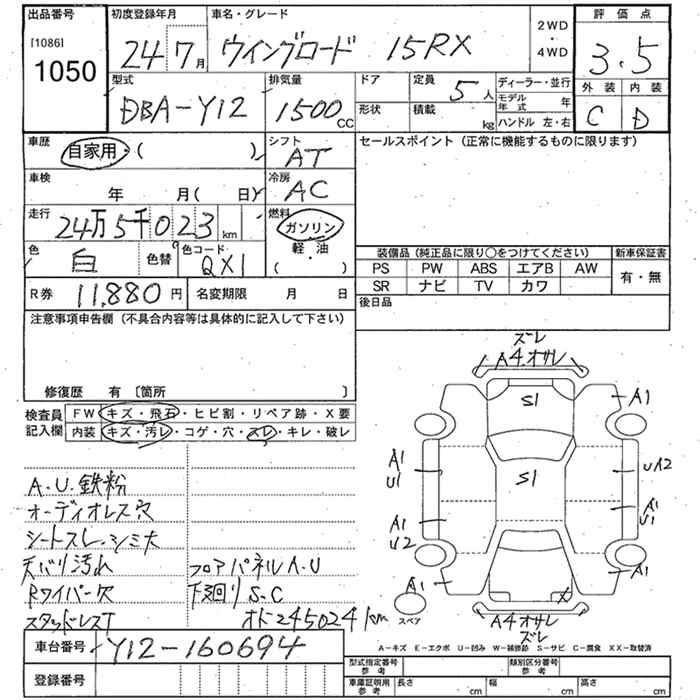 出品番号 初度登録年月 車名・グレード 2WD・4WD 評価点
[1086] 1050 24 7月 ウイングロード 15RX 3.5
外装 内装
C D
型式 排気量 ドア 定員 5人 ディーラー・並行
DBA-Y12 1500CC 形状 積載 kg モデル年式 年
ハンドル 左・右
車歴 自家用・( ) シフト AT セールスポイント (正常に機能するものに限ります)
車検 年 月( 日) 冷房 AC
走行 24万5千023km 燃料 ガソリン・軽・油 ( )
色 白 色替 色コード QX1
装備品 (純正品に限り○をつけてください) 新車保証書
PS PW ABS エアB AW 有・無
SR ナビ TV カワ
R券 11,880円 名変期限 月 日 後日品
注意事項申告欄 (不具合内容等は具体的に記入して下さい)
修復歴 有 [箇所 ]
検査員記入欄 FW キズ・飛石・ヒビ割・リペア跡・X要
内装 キズ・汚レ・コゲ・穴・スレ・キレ・破レ
A.U.鉄粉
オーディオレス穴
シートスレ・シミ大
天バリ汚れ フロアパネルA.U
Rワイパー欠 下廻りS.C
スタッドレスT オド245024km
ズレ
A4.オサレ
S1 A1
A1 U1 S1 UA2
A1 U2 A1 U1
A1 A1
X
スペア A4オサレ
ズレ
車台番号 Y12-160694
A-キズ E-エクボ U-凹み W-補修跡 S-サビ C-腐食 XX-取替済
登録番号
型式指定番号 参考 類別区分番号 参考
車庫証明用 参考 長さ cm 幅 cm 高さ cm